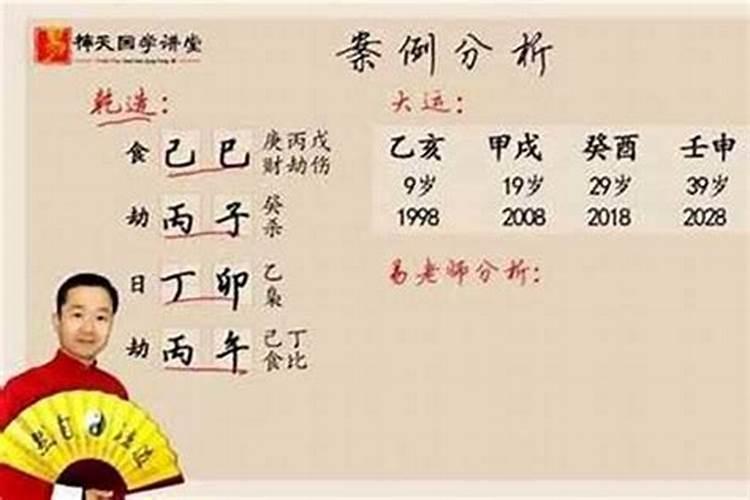 易
禅天国学讲堂
案例分析
乾造：
食 己巳 庚丙戊
财劫伤
劫 丙子 癸
杀
日 丁卯 乙
枭
劫 丙午 己丁
食比
大运：
乙亥 甲戌 癸酉 壬申
9岁 19岁 29岁 39岁
1998 2008 2018 2028
易老师分析：